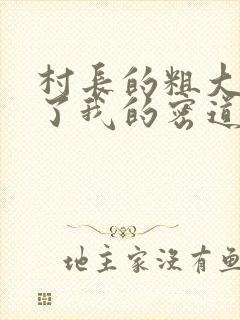 村長的粗大
了我的密道
地主家沒有魚